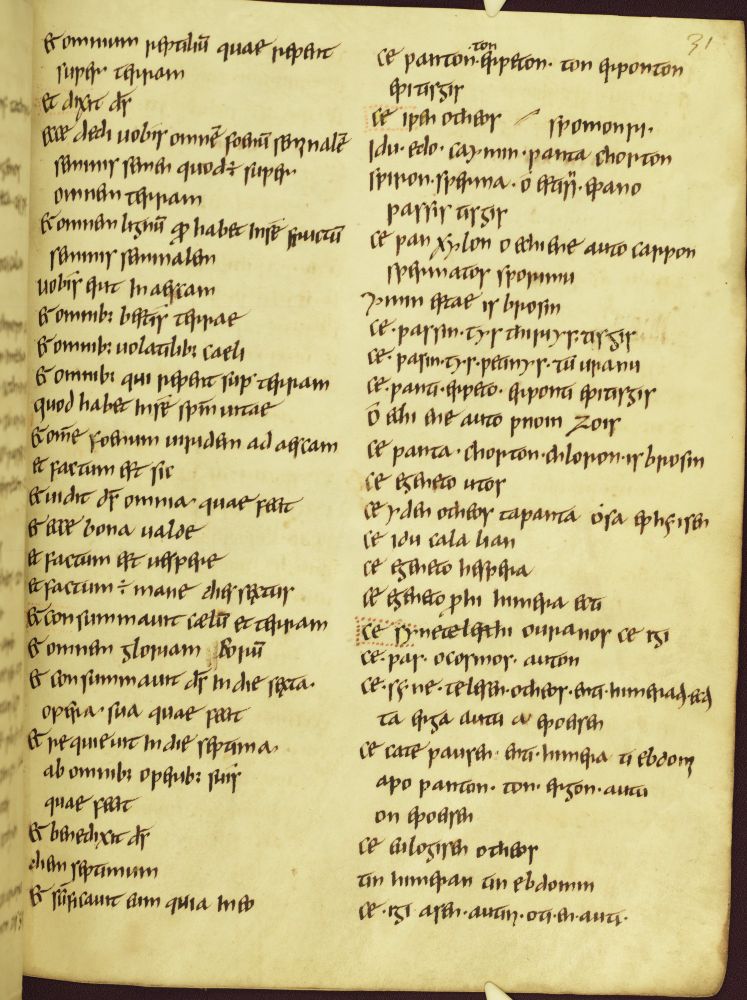 31
et omnium reptiliū quae repent
super terram
et dixit d̄s
ecce dedi uobis omnē foenū seminalē
seminis semen quod ÷ super
omnem terram
et omnem lignū habet inse fructū
seminis seminalem
uobis erit in aescam
et omnib: bestiis terrae
et omnib: uolatilib: caeli
et omnib: qui repent sup terram
quod habet inse spm uitae
et omē foenum uiridem ad aescam
et factum est sic
et uidit d̄s omnia quae fecit
et ecce bona ualde
et factum est uespere
et factum ÷ mane dies sextus
et consummauit caelū et terram
et omnem gloriam eorū
et consummauit d̄s in die sexta
opera sua quae fecit
et requieuit in die septima
ab omnib: operib: suis
quae fecit
et benedixit d̄s
diem septimum
et sc̄ificauit eum quia in eo
ce panton ton erpeton. ton erponton
epi tis gis
ce ipen otheos sporimon
idu. edo. ca ymin. panta chorton
spiron. sperma. o estin. epano
passis tis gis
ce pan xylon o echi ene auto carpon
spermatos sporimu
ymin estae is brosin
ce. passin. tys thiriys. tis gis
ce. pasin. tys. petinys. tu uranu
ce. panti. erpeto. erponti epi tis gis
o echi ene auto pnoin zois
ce panta. chorton. chloron. is brosin
ce egeneto utos
ce yden otheos tapanta osa epiisen
ce idu cala lian
ce egeneto hespera
ce egeneto phi himera ecti
ce synetelesthi ouranos ce i gi
ce. pas. o cosmos. auton
ce. syne. telesen. otheos. enti. himera
ta erga autu a epoesen
ce catepausen. enti. himera ti ebdomi
apo panton. ton. ergon. autu
on epoesen
ce eulogisen otheos
tin himeran tin ebdomin
ce. igi asen. autin. oti. en. auti.